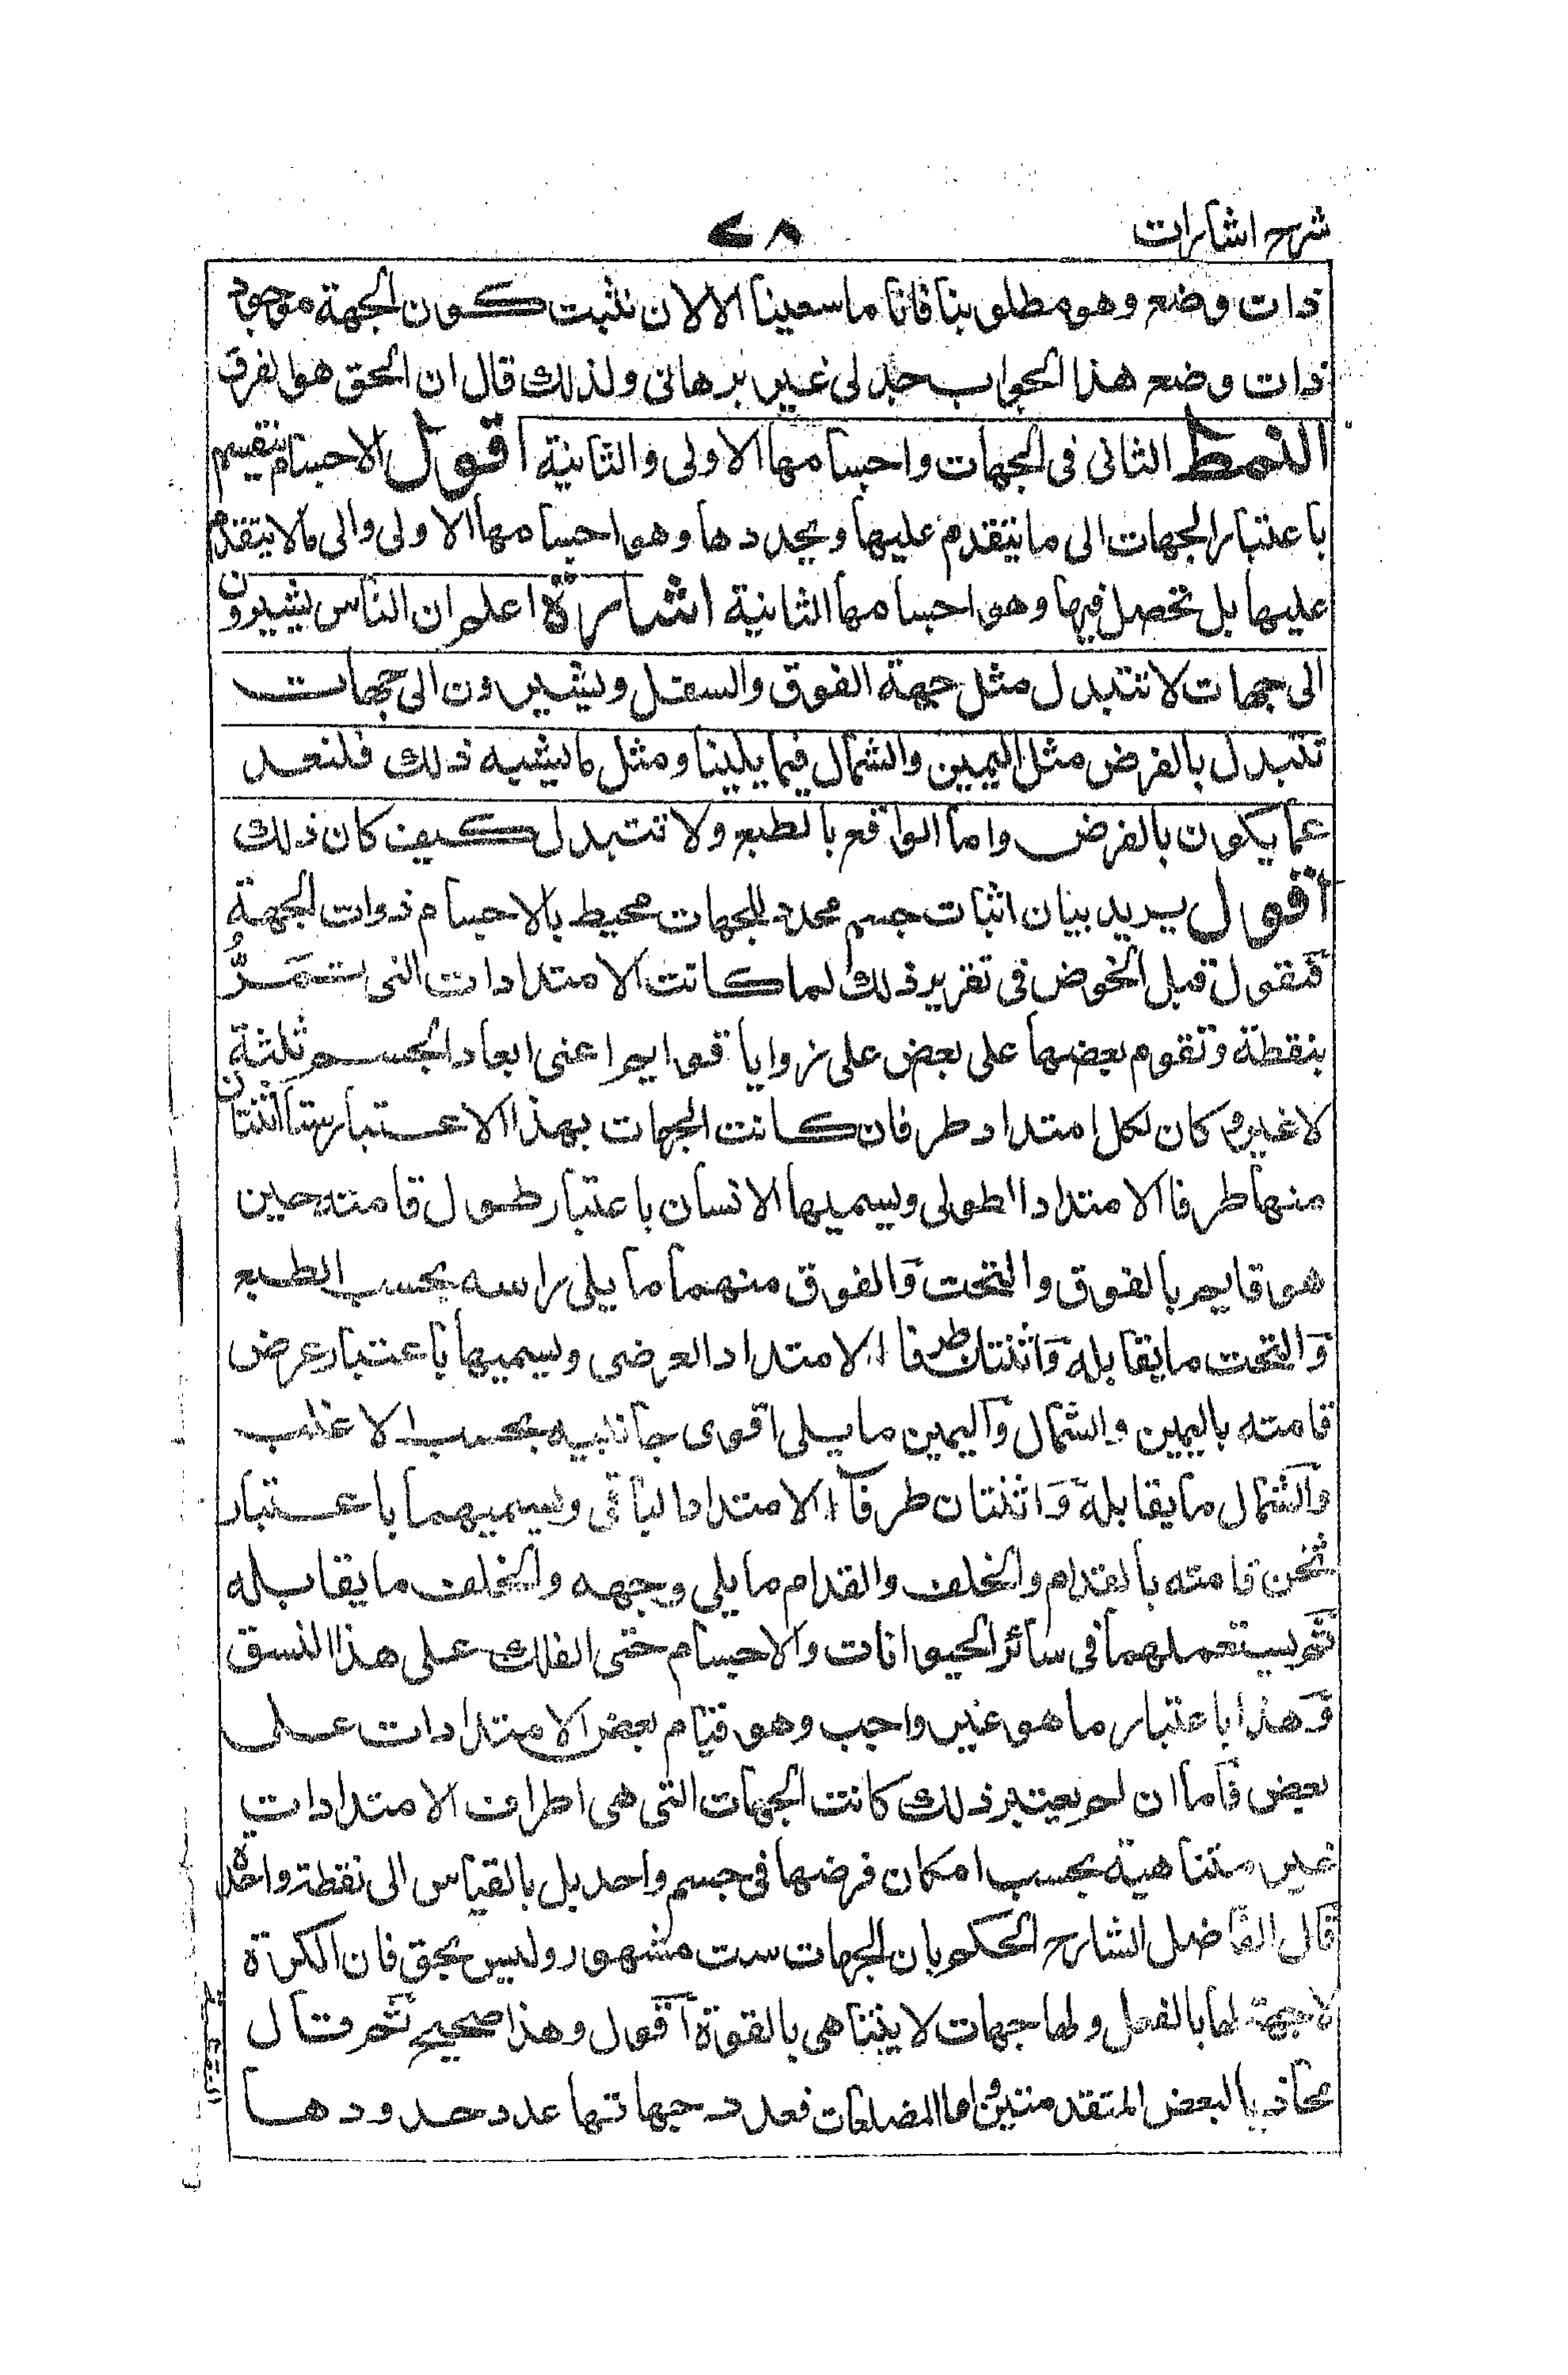 شرح اشارات
٧٨
ذات وضع وهو مطلوبنا فانا ما سعينا الا لان نثبت كون الجهة موجودة
ذات وضع هذا الجواب جدلى غير برهانى ولذلك قال ان الحق هو الفرق
النمط الثانى فى الجهات واجسامها الاولى والثانية اقول الاجسام تنقسم
باعتبار الجهات الى ما يتقدم عليها ويحددها وهو اجسامها الاولى والى ما لا يتقدم
عليها بل تحصل فيها وهو اجسامها الثانية اشارة اعلم ان الناس يشيرون
الى جهات لا تتبدل مثل جهة الفوق والسفل ويشيرون الى جهات
تتبدل بالفرض مثل اليمين والشمال فيما يلينا ومثل ما يشبه ذلك فلنعد
عما يكون بالفرض واما الواقع بالطبع ولا تتبدل كيف كان ذلك
اقول يريد بيان اثبات جسم محدد للجهات محيط بالاجسام ذوات الجهة
فنقول قبل الخوض فى تقرير ذلك لما كانت الامتدادات التى تَمُرُّ
بنقطة وتقوم بعضها على بعض على زوايا قوايم اعنى ابعاد الجسم ثلثة
لا غير وكان لكل امتداد طرفان كانت الجهات بهذا الاعتبار ستا اثنتان
منها طرفا الامتداد الطولى ويسميها الانسان باعتبار طول قامته حين
هو قايم بالفوق والتحت والفوق منهما ما يلى راسه بحسب الطبع
والتحت ما يقابله واثنتان طرفا الامتداد العرضى ويسميها باعتبار عرض
قامته باليمين والشمال واليمين ما يلى اقوى جانبيه بحسب الاغلب
والشمال ما يقابله واثنتان طرفا الامتداد الباقى ويسميهما باعتبار
ثخن قامته بالقدام والخلف والقدام ما يلى وجهه والخلف ما يقابله
ثم يستعملهما فى سائر الحيوانات والاجسام حتى الفلك على هذا النسق
وهذا باعتبار ما هو غير واجب وهو قيام بعض الامتدادات على
بعض فاما ان لم يعتبر ذلك كانت الجهات التى هى اطراف الامتدادات
غير متناهية بحسب امكان فرضها فى جسم واحد بل بالقياس الى نقطة واحدة
قال الفاضل الشارح الحكم بان الجهات ست مشهور وليس بحق فان الكرة
لا جهة لها بالفعل ولها جهات لا يتناهى بالقوة اقول وهذا صحيح ثم قال
محاذيا لبعض المتقدمين واما المضلعات فعدد جهاتها عدد حدودها